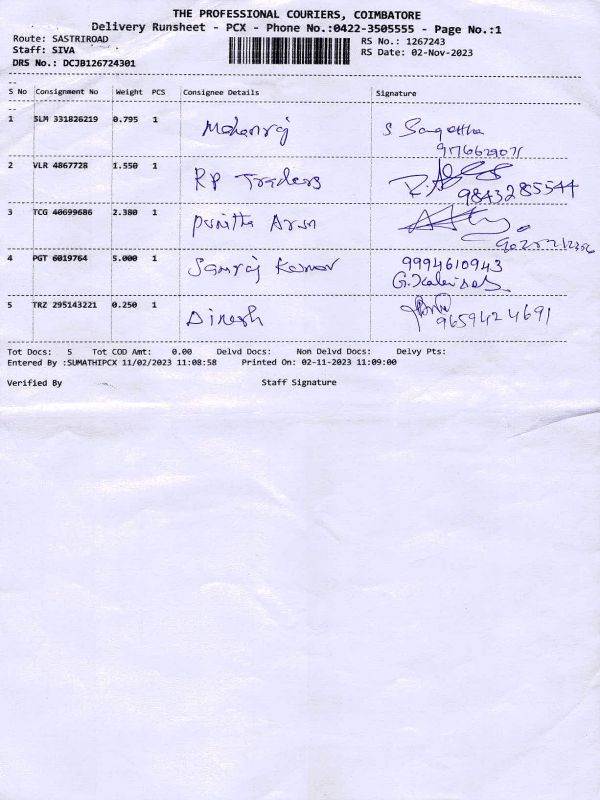 THE PROFESSIONAL COURIERS, COIMBATORE
Delivery Runsheet - PCX - Phone No.:0422-3505555 - Page No.:1
Route: SASTRIROAD RS No.: 1267243
Staff: SIVA RS Date: 02-Nov-2023
DRS No.: DCJB126724301
S No Consignment No Weight PCS Consignee Details Signature
1 SLM 331826219 0.795 1 Mohanraj S Sangeetha
2 VLR 4867728 1.550 1 RP Traders
9843285544
3 TCG 40699686 2.380 1 Punitha Arun
4 PGT 6019764 5.000 1 Samraj Kumar 9994610943
5 TRZ 295143221 0.250 1 Dinesh
9659424691
Tot Docs: 5 Tot COD Amt: 0.00 Delvd Docs: Non Delvd Docs: Delvy Pts:
Entered By :SUMATHIPCX 11/02/2023 11:08:58 Printed On: 02-11-2023 11:09:00
Verified By Staff Signature